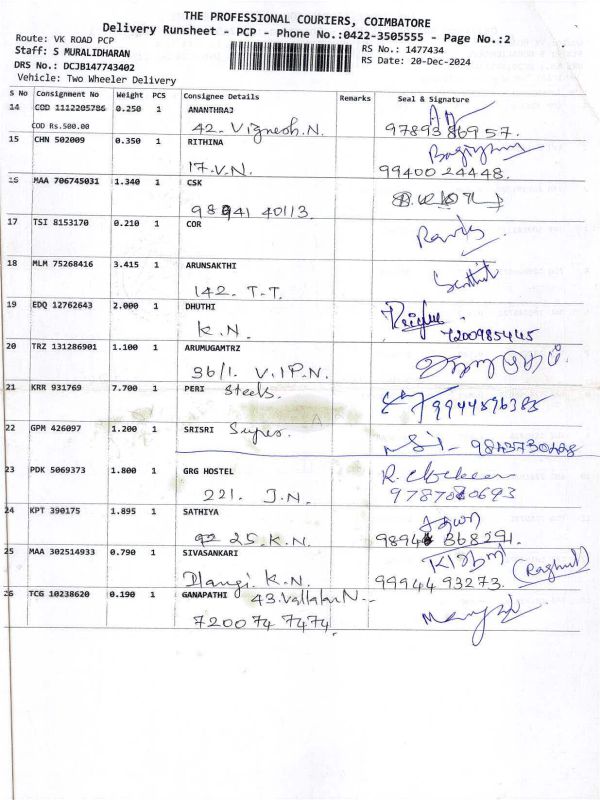 THE PROFESSIONAL COURIERS, COIMBATORE
Delivery Runsheet - PCP - Phone No.:0422-3505555 - Page No.:2
Route: VK ROAD PCP
RS No.: 1477434
Staff: S MURALIDHARAN
RS Date: 20-Dec-2024
DRS No.: DCJB147743402
Vehicle: Two Wheeler Delivery
S No Consignment No Weight PCS Consignee Details Remarks Seal & Signature
14 COD 1112205786 0.250 1 ANANTHRAJ
COD Rs.500.00 42. Vignesh.N. 97893 86957.
15 CHN 502009 0.350 1 RITHINA
17.V.N. 99400 24448.
16 MAA 706745031 1.340 1 CSK
98941 40113.
17 TSI 8153170 0.210 1 COR
18 MLM 75268416 3.415 1 ARUNSAKTHI
142. T.T. Senthil
19 EDQ 12762643 2.000 1 DHUTHI
K.N. 7200985445
20 TRZ 131286901 1.100 1 ARUMUGAMTRZ
36/1. V.I.P.N.
21 KRR 931769 7.700 1 PERI Steels.
22 GPM 426097 1.200 1 SRISRI Super.
23 PDK 5069373 1.800 1 GRG HOSTEL
221. J.N.
24 KPT 390175 1.895 1 SATHIYA
25.K.N. 98944 868291.
25 MAA 302514933 0.790 1 SIVASANKARI
Ilangi. K.N. 99944 93273. (Raghul)
26 TCG 10238620 0.190 1 GANAPATHI 43.Vallalar N.
720074 7474.